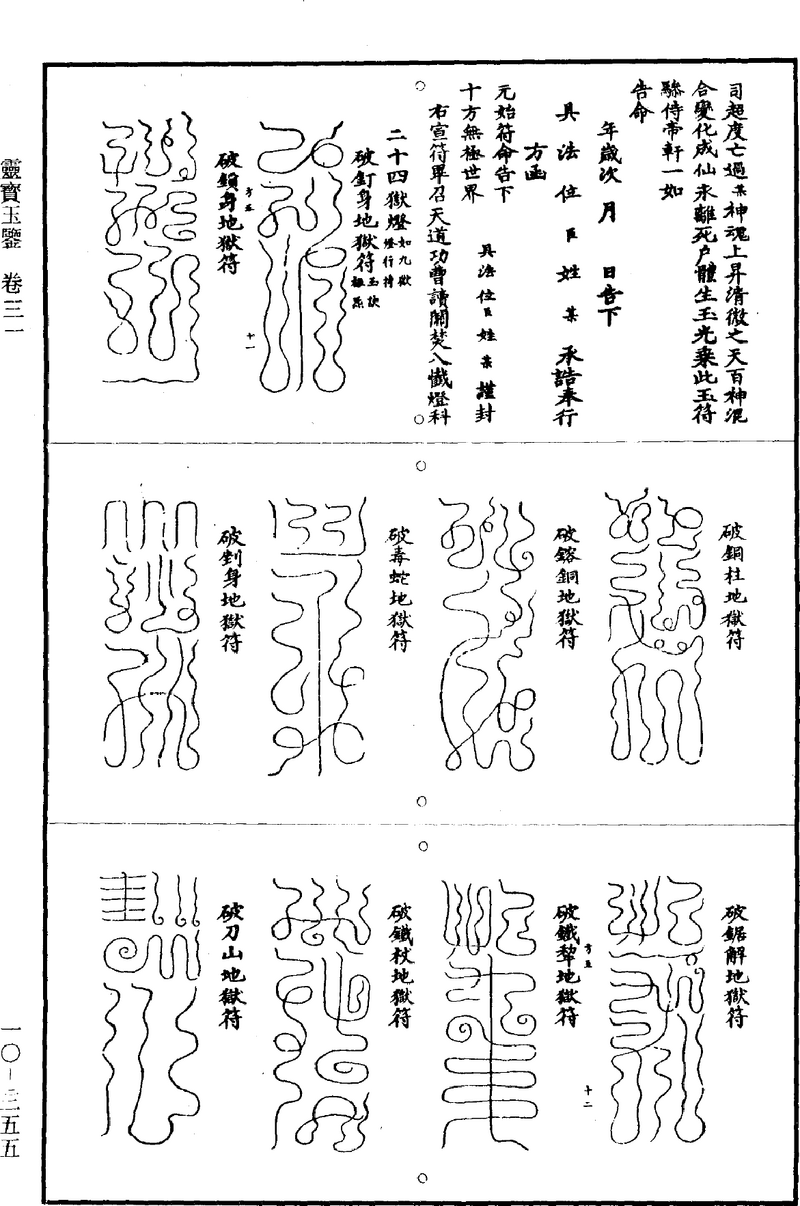 司超度亡過某神魂上昇清微之天百神混
合變化成仙永離死戶體生玉光乘此玉符
驂侍帝軒一如
告命
年歲次 月 日告下
具法位臣姓某 承誥奉行
方函
元始符命告下
十方無極世界
具法位臣姓某謹封
右宣符畢召天道功曹讀關焚入懺燈科
二十四獄燈如九獄燈行持
破釘身地獄符
破鎖身地獄符
十一
破銅柱地獄符
破鎔銅地獄符
破毒蛇地獄符
破剉身地獄符
破鋸解地獄符
十二
破鐵犂地獄符
破鐵杖地獄符
破刀山地獄符
靈寶玉鑒 卷三一
一〇-三五五